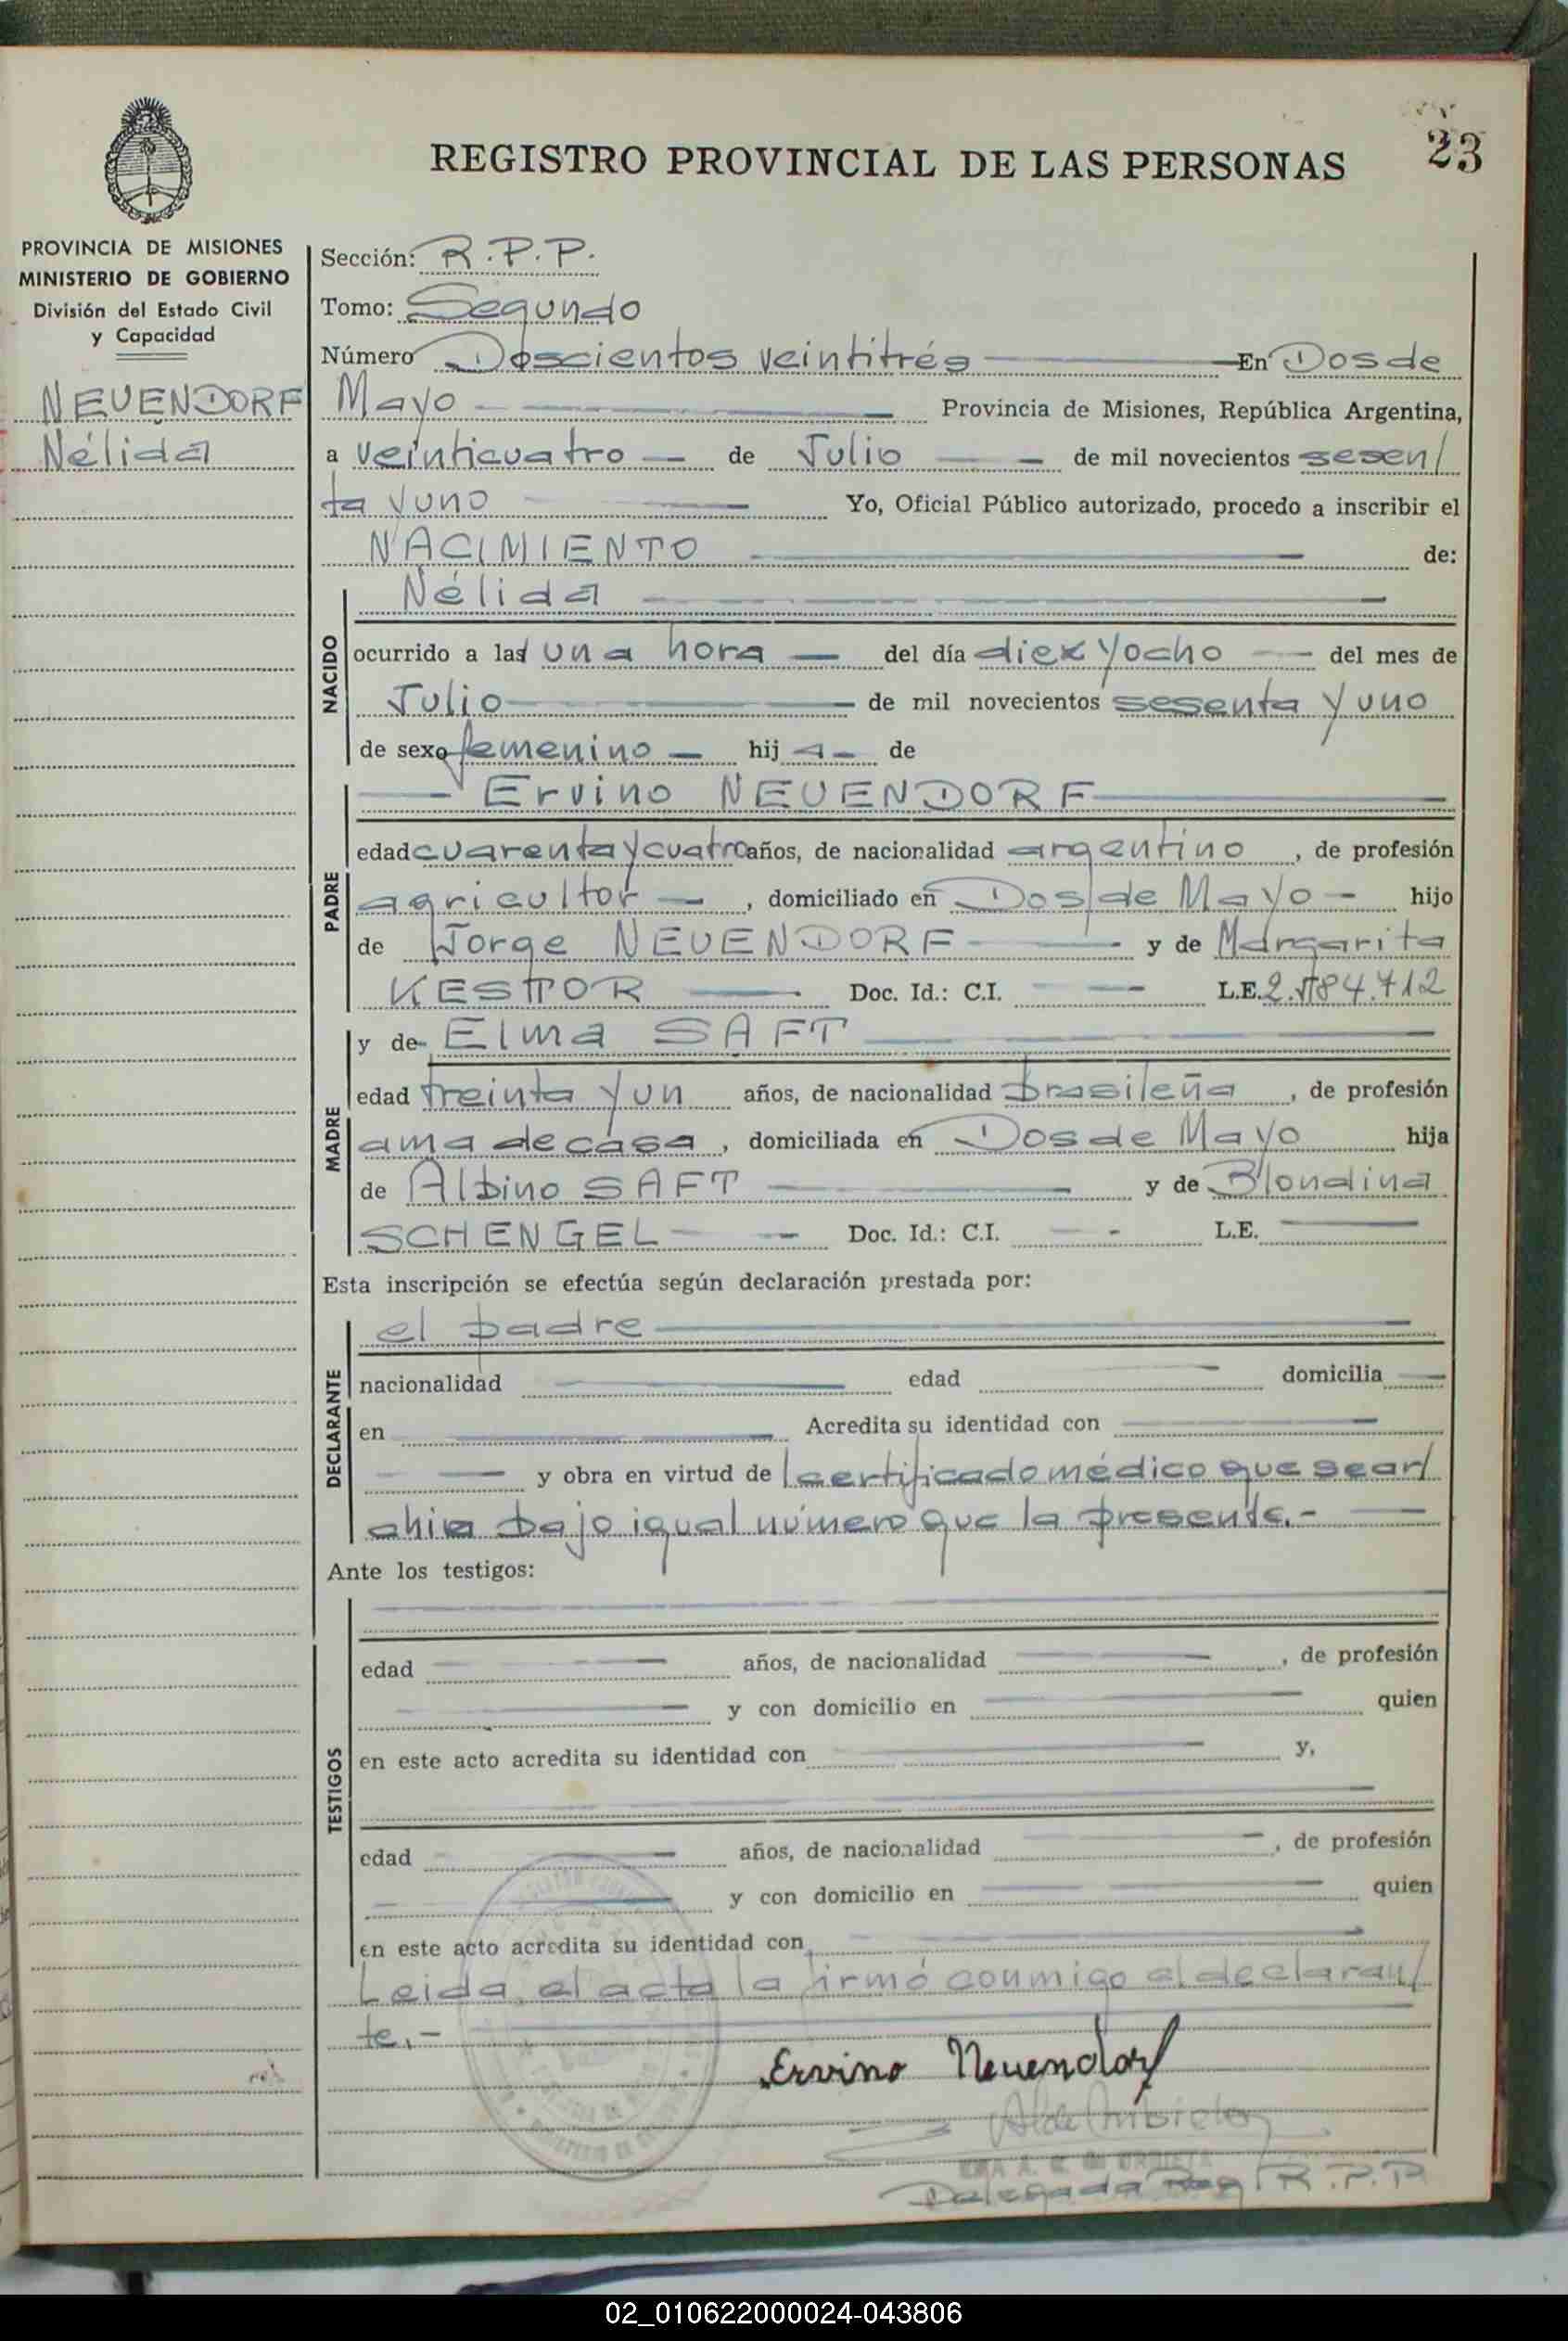 23
REGISTRO PROVINCIAL DE LAS PERSONAS
PROVINCIA DE MISIONES
MINISTERIO DE GOBIERNO
División del Estado Civil
y Capacidad
NEUENDORF
Nélida
Sección: R.P.P.
Tomo: Segundo
Número Doscientos veintitrés En Dos de
Mayo Provincia de Misiones, República Argentina,
a veinticuatro de Julio de mil novecientos sesen/
ta y uno Yo, Oficial Público autorizado, procedo a inscribir el
NACIMIENTO de:
NACIDO
Nélida
ocurrido a las una hora del día diex y ocho del mes de
Julio de mil novecientos sesenta y uno
de sexo femenino hij a de
PADRE
Ervino NEUENDORF
edad cuarenta y cuatro años, de nacionalidad argentino, de profesión
agricultor, domiciliado en Dos de Mayo hijo
de Jorge NEUENDORF y de Margarita
Doc. Id.: C.I. L.E.
MADRE
y de Elma SAFT
edad treinta y un años, de nacionalidad brasileña, de profesión
ama de casa, domiciliada en Dos de Mayo hija
de Albino SAFT y de Blondina
SCHENGEL Doc. Id.: C.I. L.E.
Esta inscripción se efectúa según declaración prestada por:
DECLARANTE
el padre
nacionalidad edad domicilia
en Acredita su identidad con
y obra en virtud de certificado médico que se ar/
chiva bajo igual número que la presente.-
Ante los testigos:
TESTIGOS
edad años, de nacionalidad , de profesión
y con domicilio en quien
en este acto acredita su identidad con y,
edad años, de nacionalidad , de profesión
y con domicilio en quien
en este acto acredita su identidad con
Leida el acta la firmó conmigo el declaran/
te.-
Ervino Neuendorf
Delegada R.P.P.
02_010622000024-043806